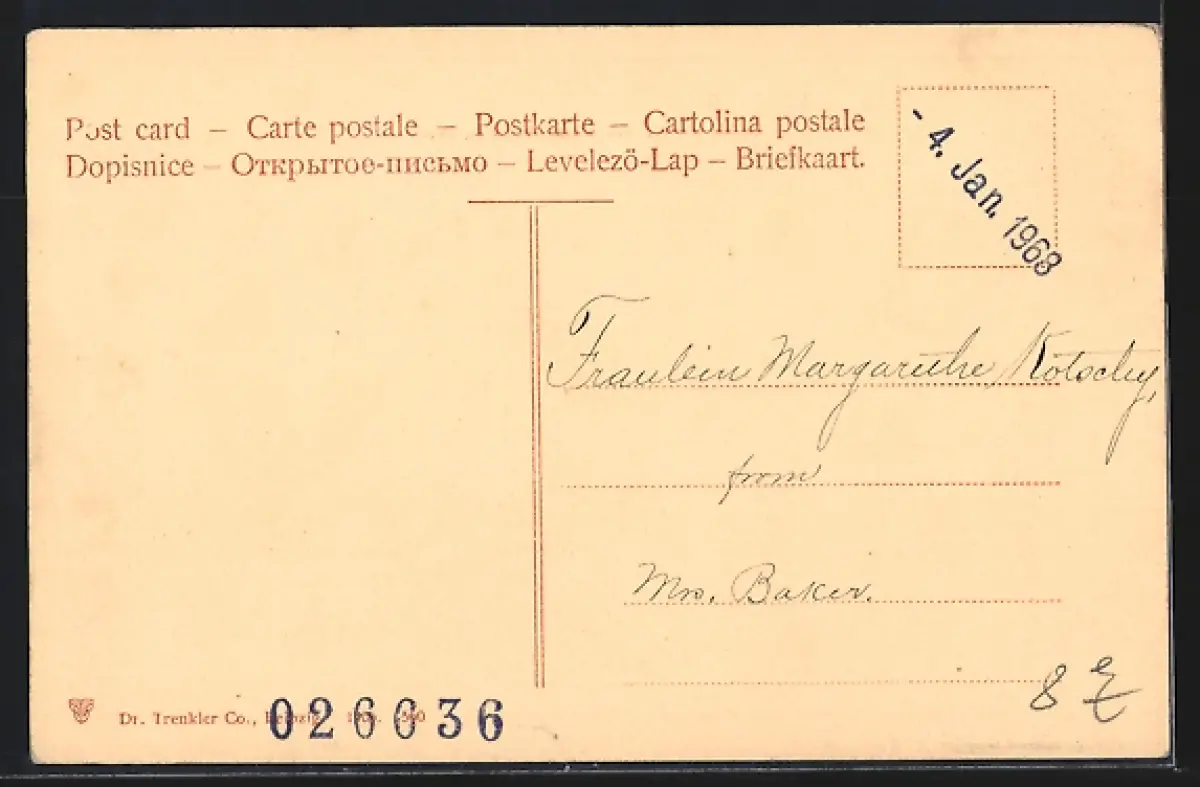 Post card – Carte postale – Postkarte – Cartolina postale
Dopisnice – Открытое-письмо – Levelező-Lap – Briefkaart.
- 4. Jan. 1968
Fraulein Margarethe Kotschy,
from
Mrs. Baker.
8
Dr. Trenkler Co., Leipzig
026036